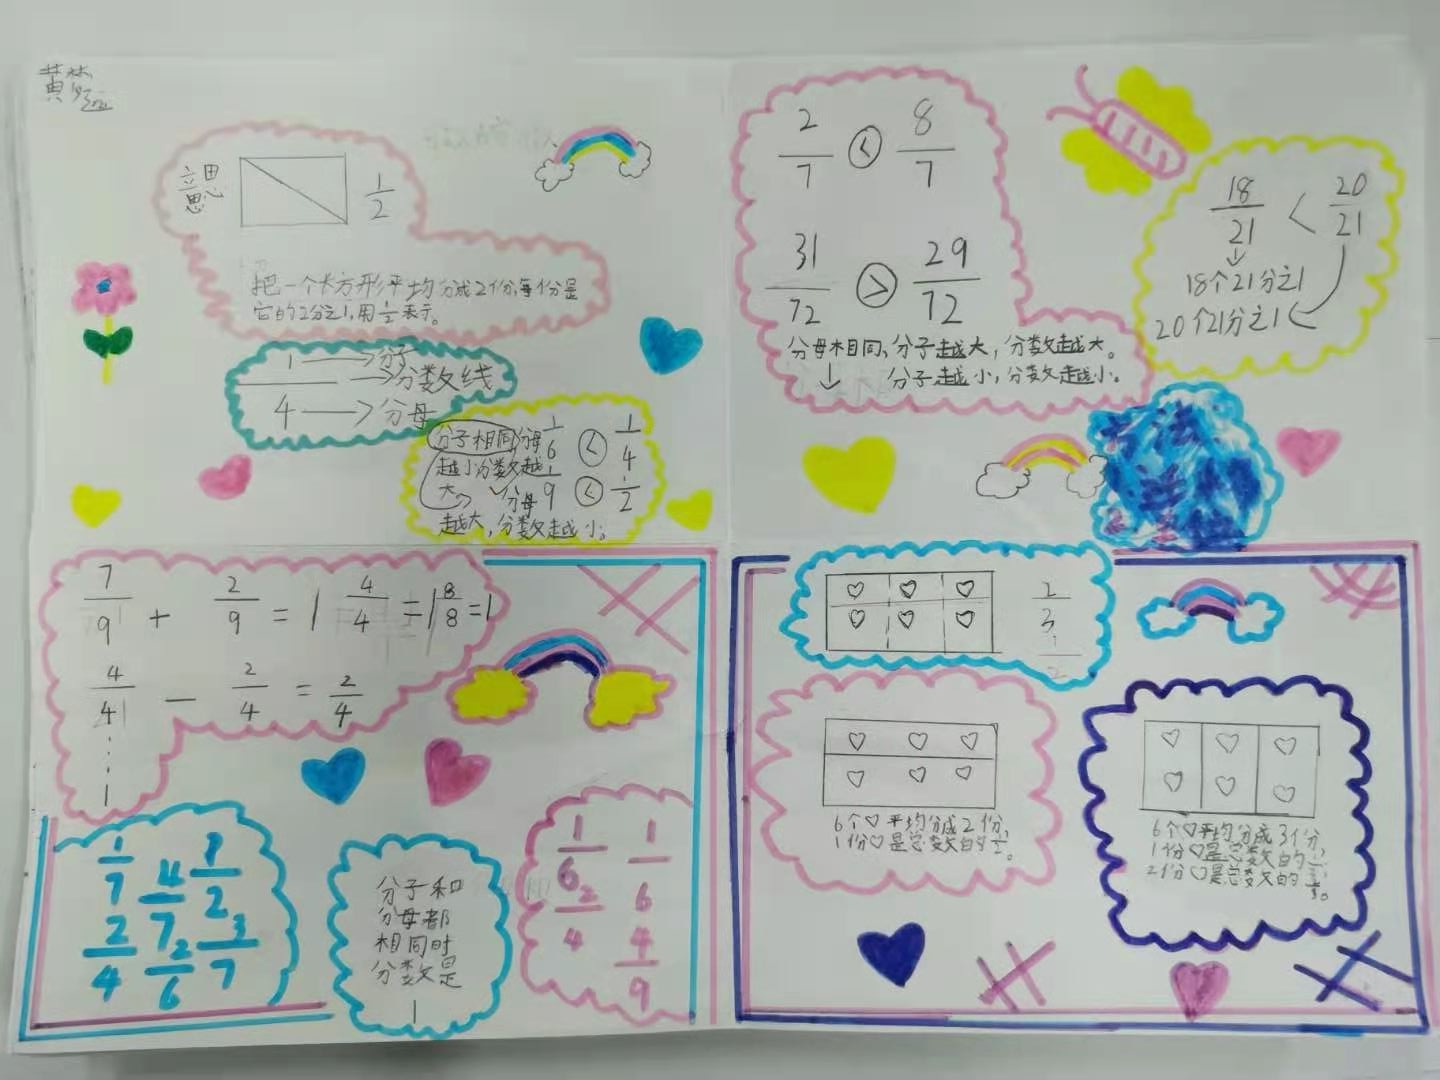 黄
意思
1/2
把一个长方形平均分成2份,每份是
它的2分之1,用1/2表示。
1→分子
→分数线
4→分母
分子相同,分母
越小分数越
大 分母
越大,分数越小。
1/6 < 1/4
1/9 < 1/2
2/7 < 8/7
31/72 > 29/72
分母相同,分子越大,分数越大。
↓ 分子越小,分数越小。
18/21 < 20/21
18个21分之1
20个21分之1
7/9 + 2/9 = 1 4/4 = 1 8/8 = 1
4/4 - 2/4 = 2/4
1
1/7 4/7 2/4 2/6 3/7
分子和
分母都
相同时
分数是
1
1/6 1/6
2/4 4/9
2/3
6个♡平均分成2份,
1份♡是总数的1/2。
6个♡平均分成3份,
1份♡是总数的1/3,
2份♡是总数的2/3。